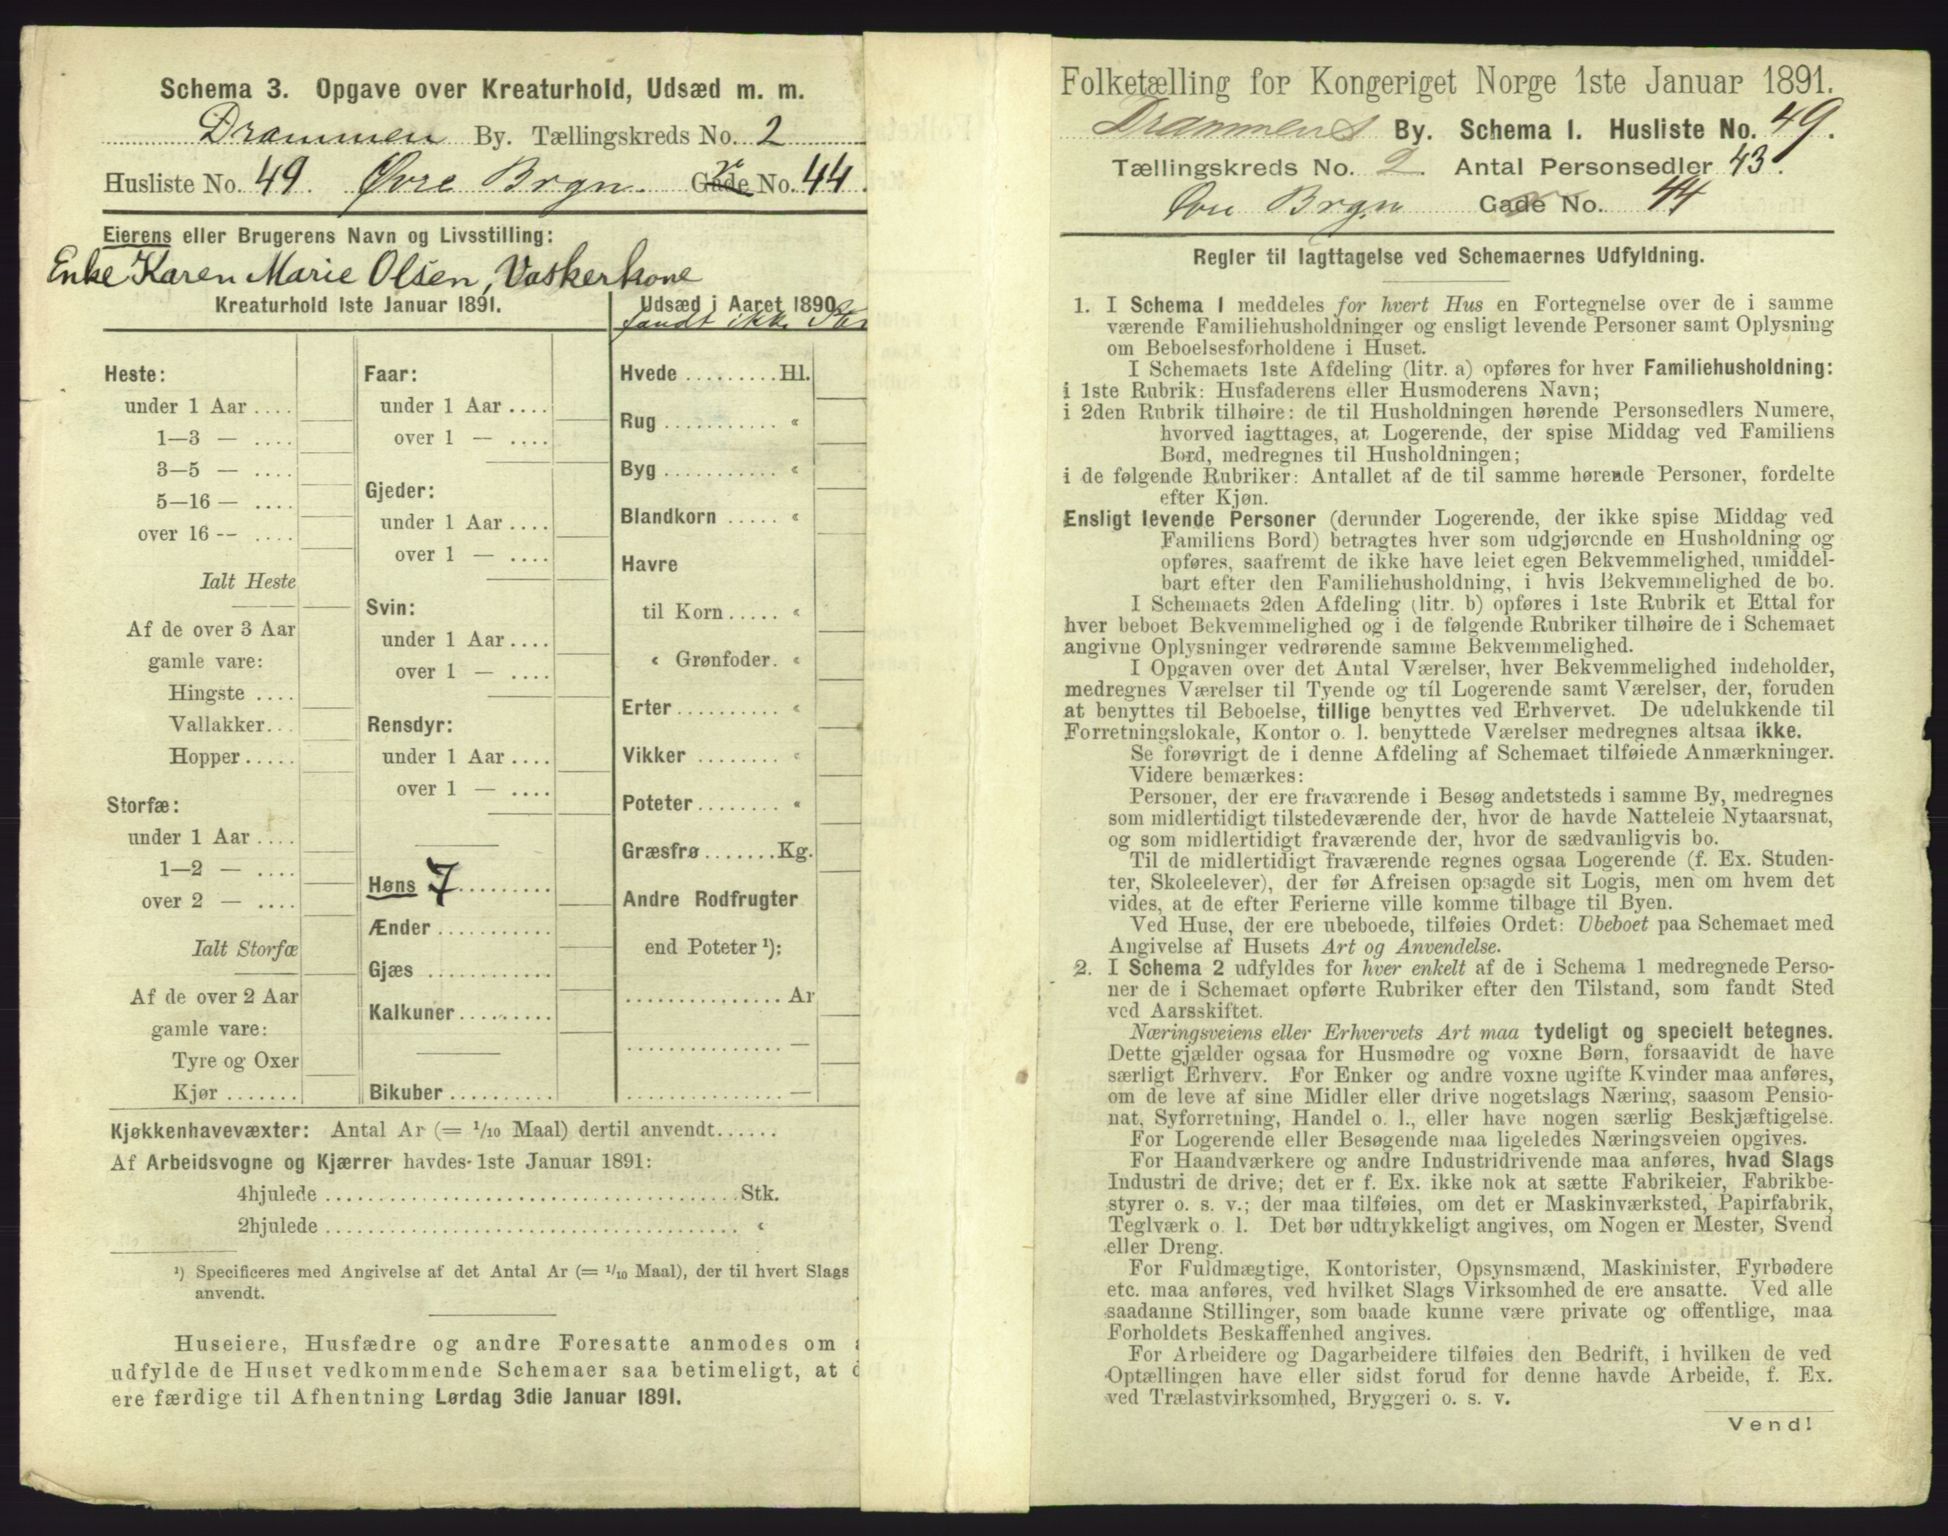 Schema 3. Opgave over Kreaturhold, Udsæd m. m.
Drammen By. Tællingskreds No. 2
Husliste No. 49. Øvre Brgn. Gade No. 44.
Eierens eller Brugerens Navn og Livsstilling:
Enke Karen Marie Olsen, Vaskerkone
Kreaturhold 1ste Januar 1891.
Heste:
under 1 Aar ....
1—3 — ....
3—5 — ....
5—16 — ....
over 16 — ....
Ialt Heste
Af de over 3 Aar
gamle vare:
Hingste ....
Vallakker...
Hopper.....
Storfæ:
under 1 Aar ....
1—2 — ....
over 2 — ....
Ialt Storfæ
Af de over 2 Aar
gamle vare:
Tyre og Oxer
Kjør .......
Faar:
under 1 Aar ....
over 1 — ....
Gjeder:
under 1 Aar ....
over 1 — ....
Svin:
under 1 Aar ....
over 1 — ....
Rensdyr:
under 1 Aar ....
over 1 — ....
Høns 7 .........
Ænder ...........
Gjæs ............
Kalkuner.........
Bikuber..........
Udsæd i Aaret 1890
fandt ikke
Hvede .........Hl.
Rug ........... «
Byg ........... «
Blandkorn ..... «
Havre
til Korn..... «
« Grønfoder. «
Erter.......... «
Vikker ........ «
Poteter........ «
Græsfrø.......Kg.
Andre Rodfrugter
end Poteter ¹):
...............Ar
............... —
............... —
Kjøkkenhavevæxter: Antal Ar (= 1/10 Maal) dertil anvendt......
Af Arbeidsvogne og Kjærrer havdes 1ste Januar 1891:
4hjulede ........................................Stk.
2hjulede ........................................ «
¹) Specificeres med Angivelse af det Antal Ar (= 1/10 Maal), der til hvert Slags
anvendt.
Huseiere, Husfædre og andre Foresatte anmodes om
udfylde de Huset vedkommende Schemaer saa betimeligt, at
ere færdige til Afhentning Lørdag 3die Januar 1891.
Folketælling for Kongeriget Norge 1ste Januar 1891.
Drammens By. Schema 1. Husliste No. 49.
Tællingskreds No. 2. Antal Personsedler 43.
Øvre Brgn Gade No. 44
Regler til Iagttagelse ved Schemaernes Udfyldning.
1. I Schema 1 meddeles for hvert Hus en Fortegnelse over de i samme
værende Familiehusholdninger og ensligt levende Personer samt Oplysning
om Beboelsesforholdene i Huset.
I Schemaets 1ste Afdeling (litr. a) opføres for hver Familiehusholdning:
i 1ste Rubrik: Husfaderens eller Husmoderens Navn;
i 2den Rubrik tilhøire: de til Husholdningen hørende Personsedlers Numere,
hvorved iagttages, at Logerende, der spise Middag ved Familiens
Bord, medregnes til Husholdningen;
i de følgende Rubriker: Antallet af de til samme hørende Personer, fordelte
efter Kjøn.
Ensligt levende Personer (derunder Logerende, der ikke spise Middag ved
Familiens Bord) betragtes hver som udgjørende en Husholdning og
opføres, saafremt de ikke have leiet egen Bekvemmelighed, umiddel-
bart efter den Familiehusholdning, i hvis Bekvemmelighed de bo.
I Schemaets 2den Afdeling (litr. b) opføres i 1ste Rubrik et Ettal for
hver beboet Bekvemmelighed og i de følgende Rubriker tilhøire de i Schemaet
angivne Oplysninger vedrørende samme Bekvemmelighed.
I Opgaven over det Antal Værelser, hver Bekvemmelighed indeholder,
medregnes Værelser til Tyende og til Logerende samt Værelser, der, foruden
at benyttes til Beboelse, tillige benyttes ved Erhvervet. De udelukkende til
Forretningslokale, Kontor o. l. benyttede Værelser medregnes altsaa ikke.
Se forøvrigt de i denne Afdeling af Schemaet tilføiede Anmærkninger.
Videre bemærkes:
Personer, der ere fraværende i Besøg andetsteds i samme By, medregnes
som midlertidigt tilstedeværende der, hvor de havde Natteleie Nytaarsnat,
og som midlertidigt fraværende der, hvor de sædvanligvis bo.
Til de midlertidigt fraværende regnes ogsaa Logerende (f. Ex. Studen-
ter, Skoleelever), der før Afreisen opsagde sit Logis, men om hvem det
vides, at de efter Ferierne ville komme tilbage til Byen.
Ved Huse, der ere ubeboede, tilføies Ordet: Ubeboet paa Schemaet med
Angivelse af Husets Art og Anvendelse.
2. I Schema 2 udfyldes for hver enkelt af de i Schema 1 medregnede Perso-
ner de i Schemaet opførte Rubriker efter den Tilstand, som fandt Sted
ved Aarsskiftet.
Næringsveiens eller Erhvervets Art maa tydeligt og specielt betegnes.
Dette gjælder ogsaa for Husmødre og voxne Børn, forsaavidt de have
særligt Erhverv. For Enker og andre voxne ugifte Kvinder maa anføres,
om de leve af sine Midler eller drive nogetslags Næring, saasom Pensio-
nat, Syforretning, Handel o. l., eller have nogen særlig Beskjæftigelse.
For Logerende eller Besøgende maa ligeledes Næringsveien opgives.
For Haandværkere og andre Industridrivende maa anføres, hvad Slags
Industri de drive; det er f. Ex. ikke nok at sætte Fabrikeier, Fabrikbe-
styrer o. s. v.; der maa tilføies, om det er Maskinværksted, Papirfabrik,
Teglværk o. l. Det bør udtrykkeligt angives, om Nogen er Mester, Svend
eller Dreng.
For Fuldmægtige, Kontorister, Opsynsmænd, Maskinister, Fyrbødere
etc. maa anføres, ved hvilket Slags Virksomhed de ere ansatte. Ved alle
saadanne Stillinger, som baade kunne være private og offentlige, maa
Forholdets Beskaffenhed angives.
For Arbeidere og Dagarbeidere tilføies den Bedrift, i hvilken de ved
Optællingen have eller sidst forud for denne havde Arbeide, f. Ex.
ved Trælastvirksomhed, Bryggeri o. s. v.
Vend!